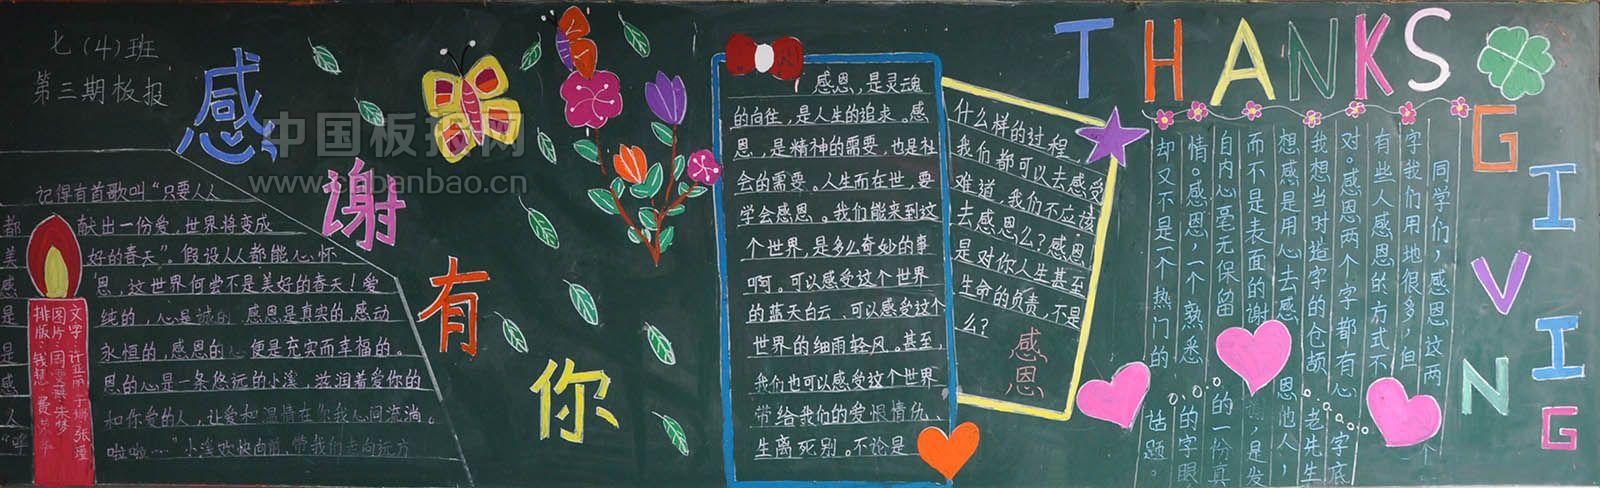 七(4)班
第三期板报
感谢有你
中国板报网
www.cnbanbao.cn
记得有首歌叫“只要人人
都献出一份爱,世界将变成
美好的春天”。假设人人都能心怀
感恩,这世界何尝不是美好的春天!爱
是纯的,心是诚的 感恩是真实的,感动
是永恒的,感恩的心 便是充实而幸福的。
感恩的心是一条悠远的小溪,滋润着爱你的
人和你爱的人,让爱和温情在你我心间流淌。
“哗啦啦……”小溪欢快向前,带我们走向远方
文字:许亚丽 于娜 张瑾
图片:周雯祺 朱梦
排版:钱慧 费
感恩,是灵魂
的向往,是人生的追求。感
恩,是精神的需要,也是社
会的需要。人生而在世,要
学会感恩。我们能来到这
个世界,是多么奇妙的事
啊。可以感受这个世界
的蓝天白云、可以感受这个
世界的细雨轻风。甚至,
我们也可以感受这个世界
带给我们的爱恨情仇、
生离死别。不论是
什么样的过程,
我们都可以去感受
难道,我们不应该
去感恩么?感恩,
是对你人生甚至
生命的负责,不是
么?
感恩
THANKS
GIVING
同学们,感恩这两个
字我们用地很多,但
有些人感恩的方式不
对。感恩两个字都有心字底
我想当时造字的仓颉老先生
想感是用心去感恩他人,
而不是表面的谢谢,是发
自内心毫无保留的一份真
情。感恩,一个熟悉的字眼
却又不是一个热门的话题。